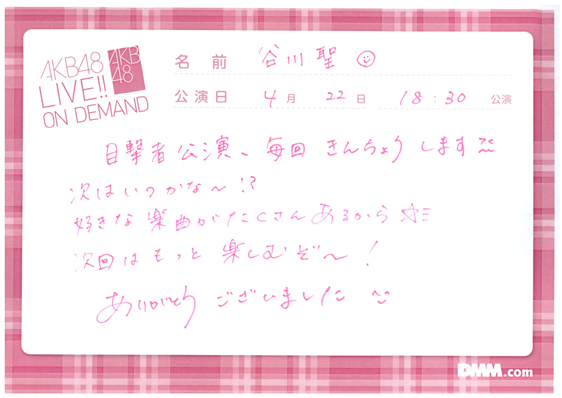 AKB48
LIVE!!
ON DEMAND
AKB
48
名前 谷川聖
公演日 4月 22日 18:30 公演
目撃者公演、毎回 きんちょうします
次はいつかな〜!?
好きな楽曲がたくさんあるから
次回はもっと楽しむぞ〜!
ありがとうございました
DMM.com